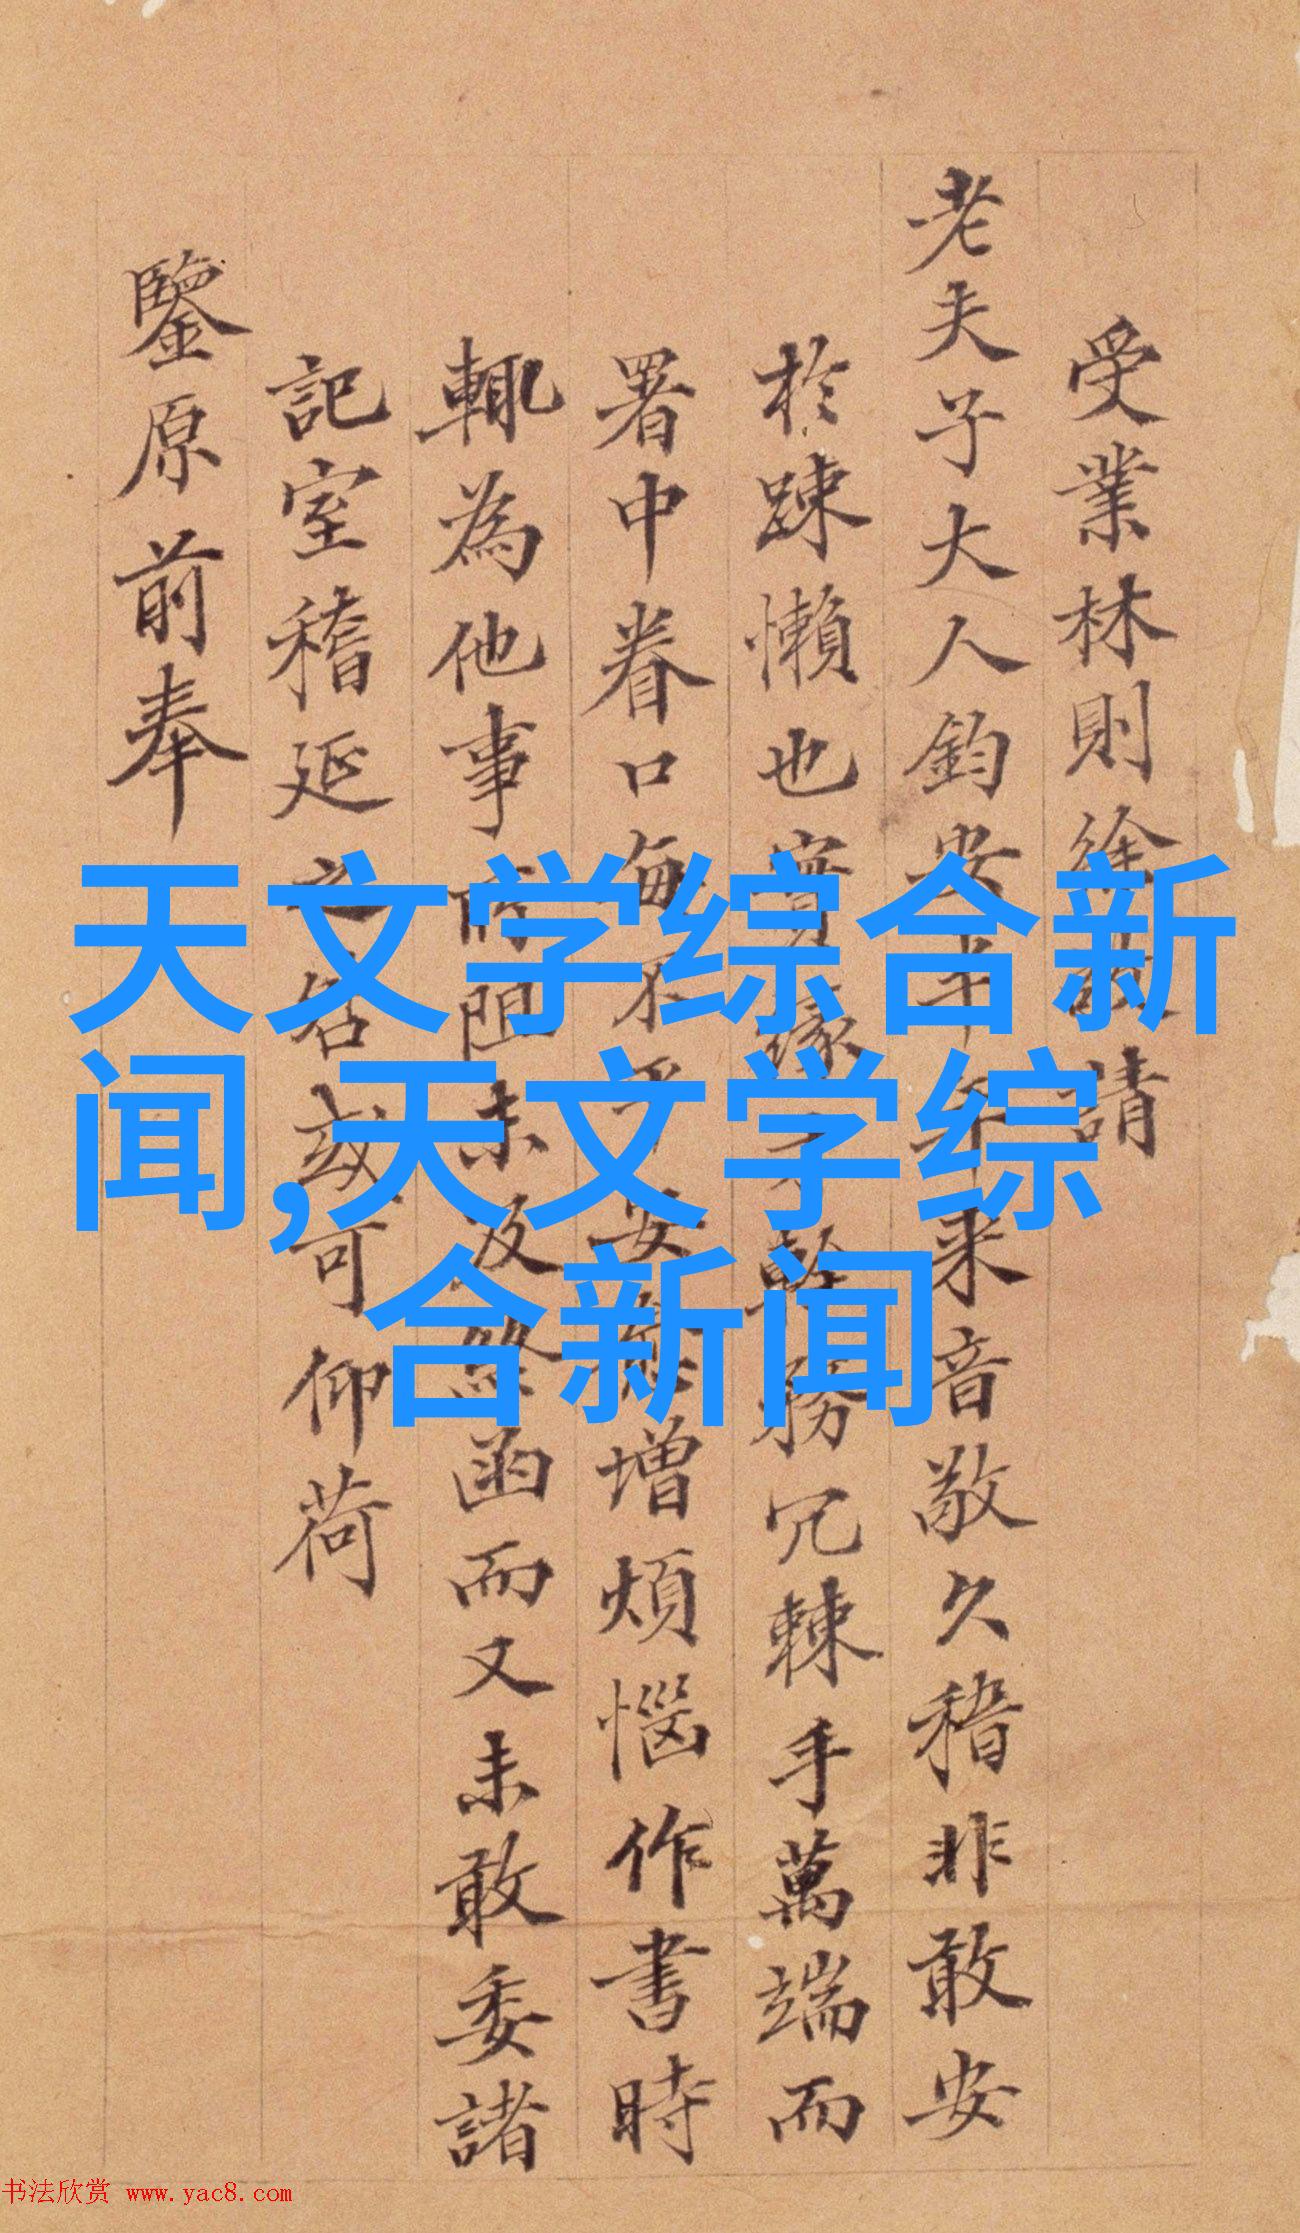 受業林則徐敬請
老夫子大人鈞安半年來音敬久稽非敢安
於踈懶也實緣務冗棘手萬端而
署中眷口每不平安愈增煩惱作書時
輒為他事所阻未及終函而又未敢委諸
記室稽延之咎或可仰荷
鑒原前奉
天文学综合新
闻,天文学综
合新闻
书法欣赏 www.yac8.com